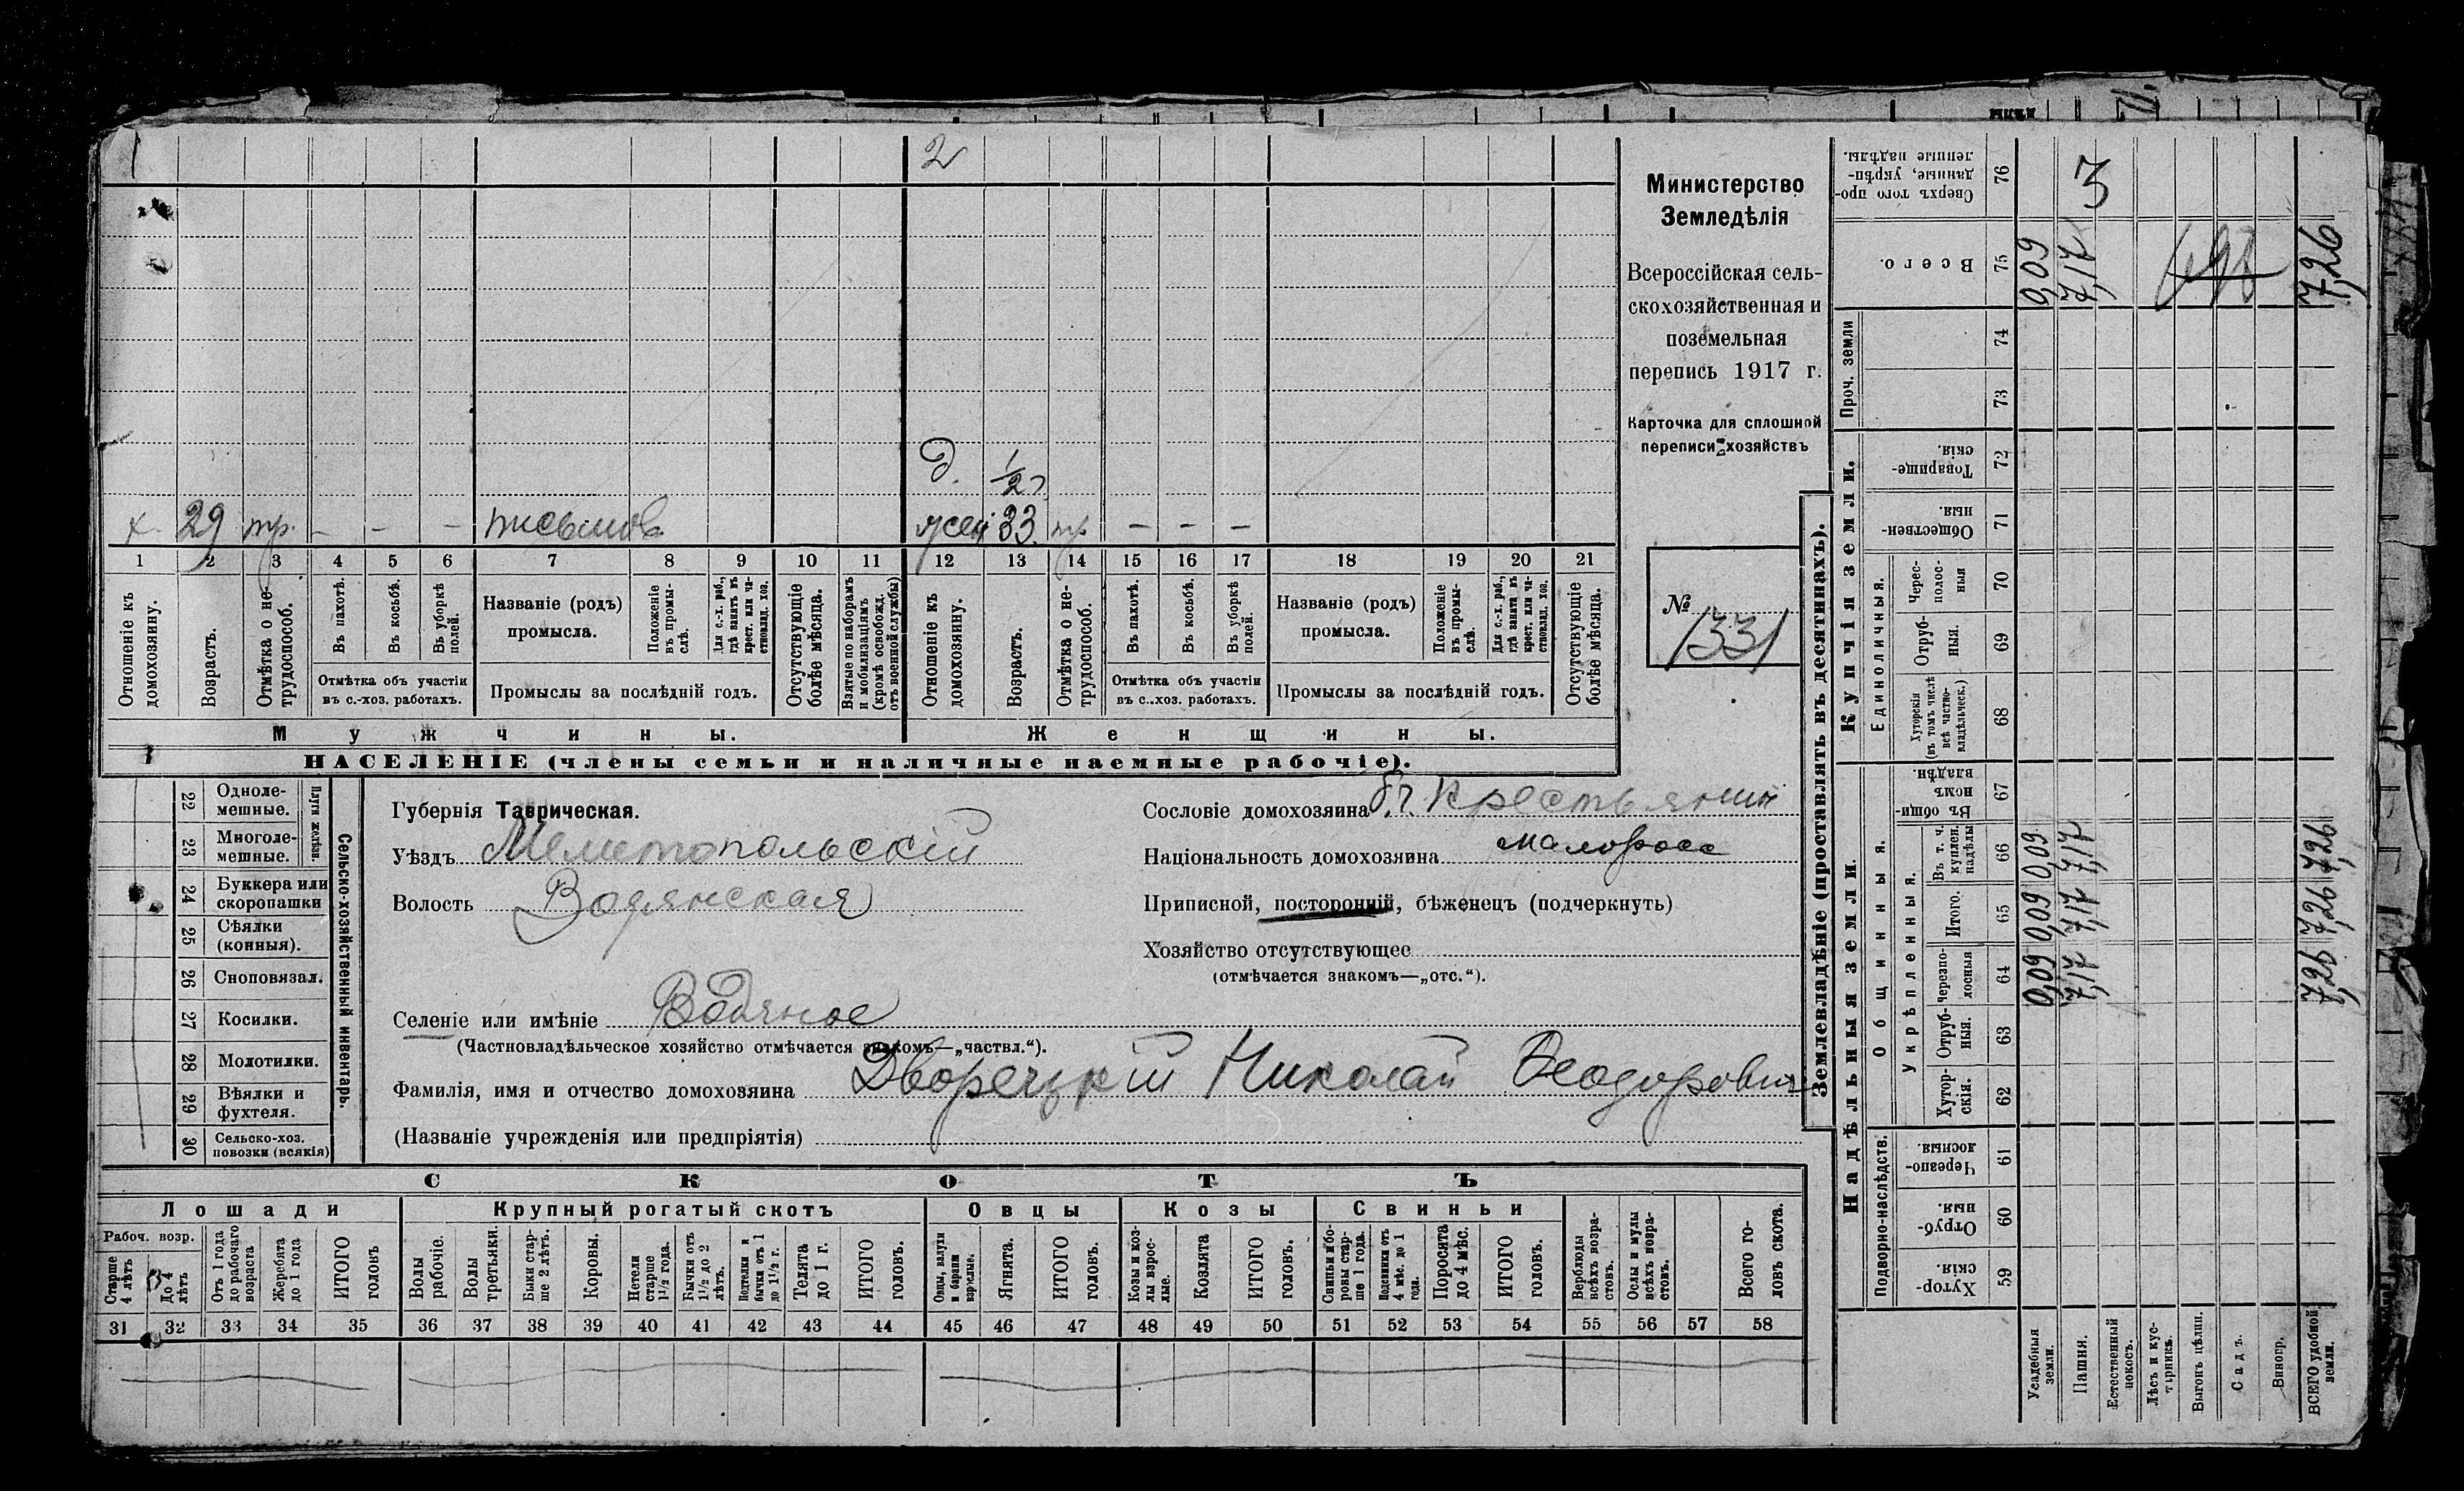 1
2
д. 1/2
х. 29 тр. - - - письмов
жен 33 тр - - -
1 2 3 4 5 6 7 8 9 10 11 12 13 14 15 16 17 18 19 20 21
Отношеніе къ домохозяину.
Возрастъ.
Отмѣтка о нетрудоспособ.
Въ пахотѣ.
Въ косьбѣ.
Въ уборкѣ полей.
Отмѣтка объ участіи
въ с.-хоз. работахъ.
Названіе (родъ)
промысла.
Положеніе въ промыслѣ.
Для с.-х. раб., гдѣ занятъ въ крест. или частновлад. хоз.
Промыслы за послѣдній годъ.
Отсутствующіе болѣе мѣсяца.
Взятые по наборамъ и мобилизаціямъ (кромѣ освобожд. отъ военной службы)
Отношеніе къ домохозяину.
Возрастъ.
Отмѣтка о нетрудоспособ.
Въ пахотѣ.
Въ косьбѣ.
Въ уборкѣ полей.
Отмѣтка объ участіи
въ с.-хоз. работахъ.
Названіе (родъ)
промысла.
Положеніе въ промыслѣ.
Для с.-х. раб., гдѣ занята въ крест. или частновлад. хоз.
Промыслы за послѣдній годъ.
Отсутствующіе болѣе мѣсяца.
Мужчины.
Женщины.
НАСЕЛЕНІЕ (члены семьи и наличные наемные рабочіе).
Министерство
Земледѣлія
Всероссійская сель-
скохозяйственная и
поземельная
перепись 1917 г.
Карточка для сплошной
переписи хозяйствъ
№ 1331
22 Одноле-
мешные.
23 Многоле-
мешные.
Плуги желѣзн.
24 Буккера или
скоропашки
25 Сѣялки
(конныя).
26 Сноповязал.
27 Косилки.
28 Молотилки.
29 Вѣялки и
фухтеля.
30 Сельско-хоз.
повозки (всякія)
Сельско-хозяйственный инвентарь.
Губернія Таврическая.
Уѣздъ Мелитопольскій
Волость Водянская
Селеніе или имѣніе Водяное
(Частновладѣльческое хозяйство отмѣчается знакомъ—„частвл.“).
Фамилія, имя и отчество домохозяина Дворецкій Николай Феодорович
(Названіе учрежденія или предпріятія)
Сословіе домохозяина крестьянин
Національность домохозяина малоросс
Приписной, посторонній, бѣженецъ (подчеркнуть)
Хозяйство отсутствующее
(отмѣчается знакомъ—„отс.“).
СКОТЪ
Лошади
Крупный рогатый скотъ
Овцы
Козы
Свиньи
Рабоч. возр.
Старше 4 лѣтъ
До 4 лѣтъ
Отъ 1 года до рабочаго возраста
Жеребята до 1 года
ИТОГО головъ
Волы рабочіе.
Волы третьяки.
Быки старше 2 лѣтъ.
Коровы.
Нетели старше 1½ года.
Бычки отъ 1½ до 2 лѣтъ.
Подтелки и бычки отъ 1 до 1½ г.
Телята до 1 г.
ИТОГО головъ.
Овцы, валухи и бараны взрослые.
Ягнята.
ИТОГО головъ.
Козы и козлы взрослые.
Козлята
ИТОГО головъ.
Свиньи и боровы старше 1 года.
Подсвинки отъ 4 мѣс. до 1 года.
Поросята до 4 мѣс.
ИТОГО головъ.
Верблюды всѣхъ возрастовъ.
Ослы и мулы всѣхъ возрастовъ.
Всего головъ скота.
31 32 33 34 35 36 37 38 39 40 41 42 43 44 45 46 47 48 49 50 51 52 53 54 55 56 57 58
Землевладѣніе (проставлять въ десятинахъ).
Надѣльныя земли.
Купчія земли.
Проч. земли
Подворно-наслѣдств.
Общинныя.
Укрѣпленныя.
Единоличныя.
Хуторскія. 59
Отрубныя. 60
Черезполосныя. 61
Хуторскія. 62
Отрубныя. 63
Черезполосныя 64 0,09 7,17 7,26
Итого. 65 0,09 7,17 7,26
Въ т. ч. куплен. надѣлы 66 0,09 7,17 7,26
Въ общинномъ владѣн. 67
Хуторскія (въ томъ числѣ всѣ частновладѣльческ.) 68
Отрубныя. 69
Чересполосныя 70
Общественныя. 71
Товарищескія. 72
73
74
Всего. 75 0,09 7,17 7,26
Сверхъ того проданные, укрѣпленные надѣлы. 76 3
Усадебныя земли.
Пашня.
Естественный покосъ.
Лѣсъ и кустарникъ.
Выгонъ цѣлин.
Садъ.
Виногр.
ВСЕГО удобной земли.